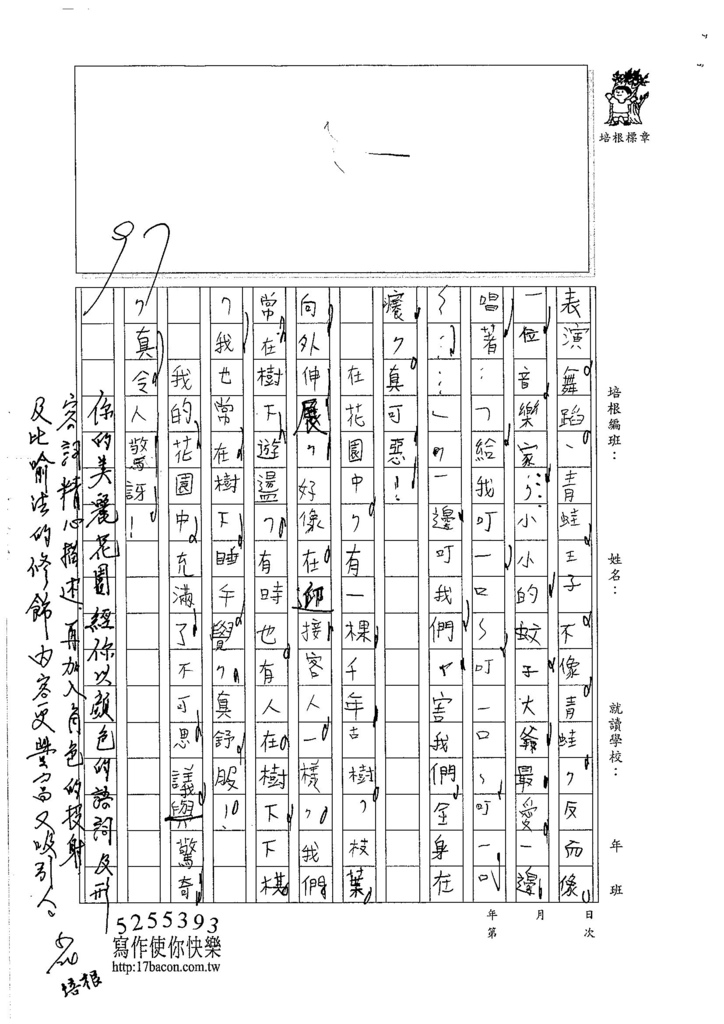 培根標章
培根編班：
姓名：
就讀學校：
年 班
年 月 日
第 次
表演舞蹈、青蛙王子不像青蛙，反而像
一位音樂家，…小小的蚊子大爺最愛一邊
唱著：「給我叮一口～叮一口～叮一口
～……」，一邊叮我們，害我們全身在
癢，真可惡！
在花園中，有一棵千年古樹，枝葉
向外伸展，好像在迎接客人一樣，我們
常在樹下遊盪，有時也有人在樹下下棋
，我也常在樹下睡午覺，真舒服！
我的花園中充滿了不可思議與驚奇
，真令人驚訝！
97
你的美麗花園經你以顏色的語詞及形
容詞精心描述再加入角色的投射
及比喻法的修飾內容更豐富又吸引人。
培根
5255393
寫作使你快樂
http:17bacon.com.tw